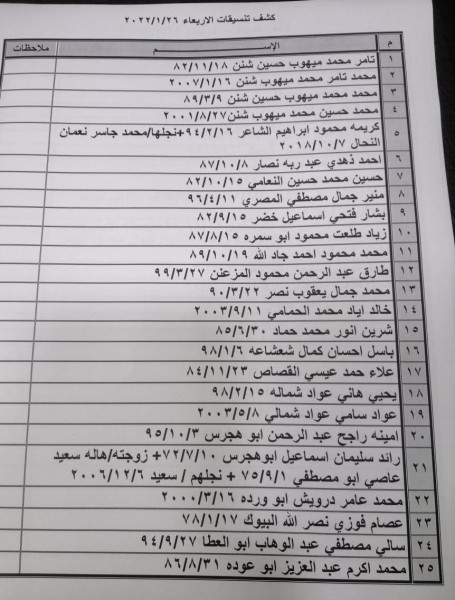 كشف تنسيقات الاربعاء ٢٠٢٢/١/٢٦
م الإســـــم ملاحظات
١ تامر محمد ميهوب حسين شنن ٨٢/١١/١٨
٢ محمد تامر محمد ميهوب شنن ٢٠٠٧/١/١٦
٣ محمد محمد ميهوب حسين شنن ٨٩/٣/٩
٤ محمد حسين محمد ميهوب شنن٢٠٠١/٨/٢٧
٥ كريمه محمود ابراهيم الشاعر ٩٤/٢/١٦+نجلها/محمد جاسر نعمان
النحال ٢٠١٨/١٠/٧
٦ احمد ذهدي عبد ربه نصار ٨٧/١٠/٨
٧ حسين محمد حسين النعامي ٨٢/١٠/١٥
٨ منير جمال مصطفي المصري ٩٦/٤/١١
٩ بشار فتحي اسماعيل خضر ٨٢/٩/١٥
١٠ زياد طلعت محمود ابو سمره ٨٧/٨/١٥
١١ محمد محمود احمد جاد الله ٨٩/١٠/١٩
١٢ طارق عبد الرحمن محمود المزعنن ٩٩/٣/٢٧
١٣ محمد جمال يعقوب نصر ٩٠/٣/٢٢
١٤ خالد اياد محمد الحمامي ٢٠٠٣/٩/١١
١٥ شرين انور محمد حماد ٨٥/٦/٣٠
١٦ باسل احسان كمال شعشاعه ٩٨/١/٦
١٧ علاء حمد عيسي القصاص ٨٤/١١/٢٣
١٨ يحيي هاني عواد شماله ٩٨/٢/١٥
١٩ عواد سامي عواد شمالي ٢٠٠٣/٥/٨
٢٠ امينه راجح عبد الرحمن ابو هجرس ٩٥/١٠/٣
٢١ رائد سليمان اسماعيل ابوهجرس ٧٢/٧/١٠+ زوجته/هاله سعيد
عاصي ابو مصطفي ٧٥/٩/١ + نجلهم / سعيد ٢٠٠٦/١٢/٦
٢٢ محمد عامر درويش ابو ورده ٢٠٠٠/٣/١٦
٢٣ عصام فوزي نصر الله البيوك ٧٨/١/١٧
٢٤ سالي مصطفي عبد الوهاب ابو العطا ٩٤/٩/٢٧
٢٥ محمد اكرم عبد العزيز ابو عوده ٨٦/٨/٣١